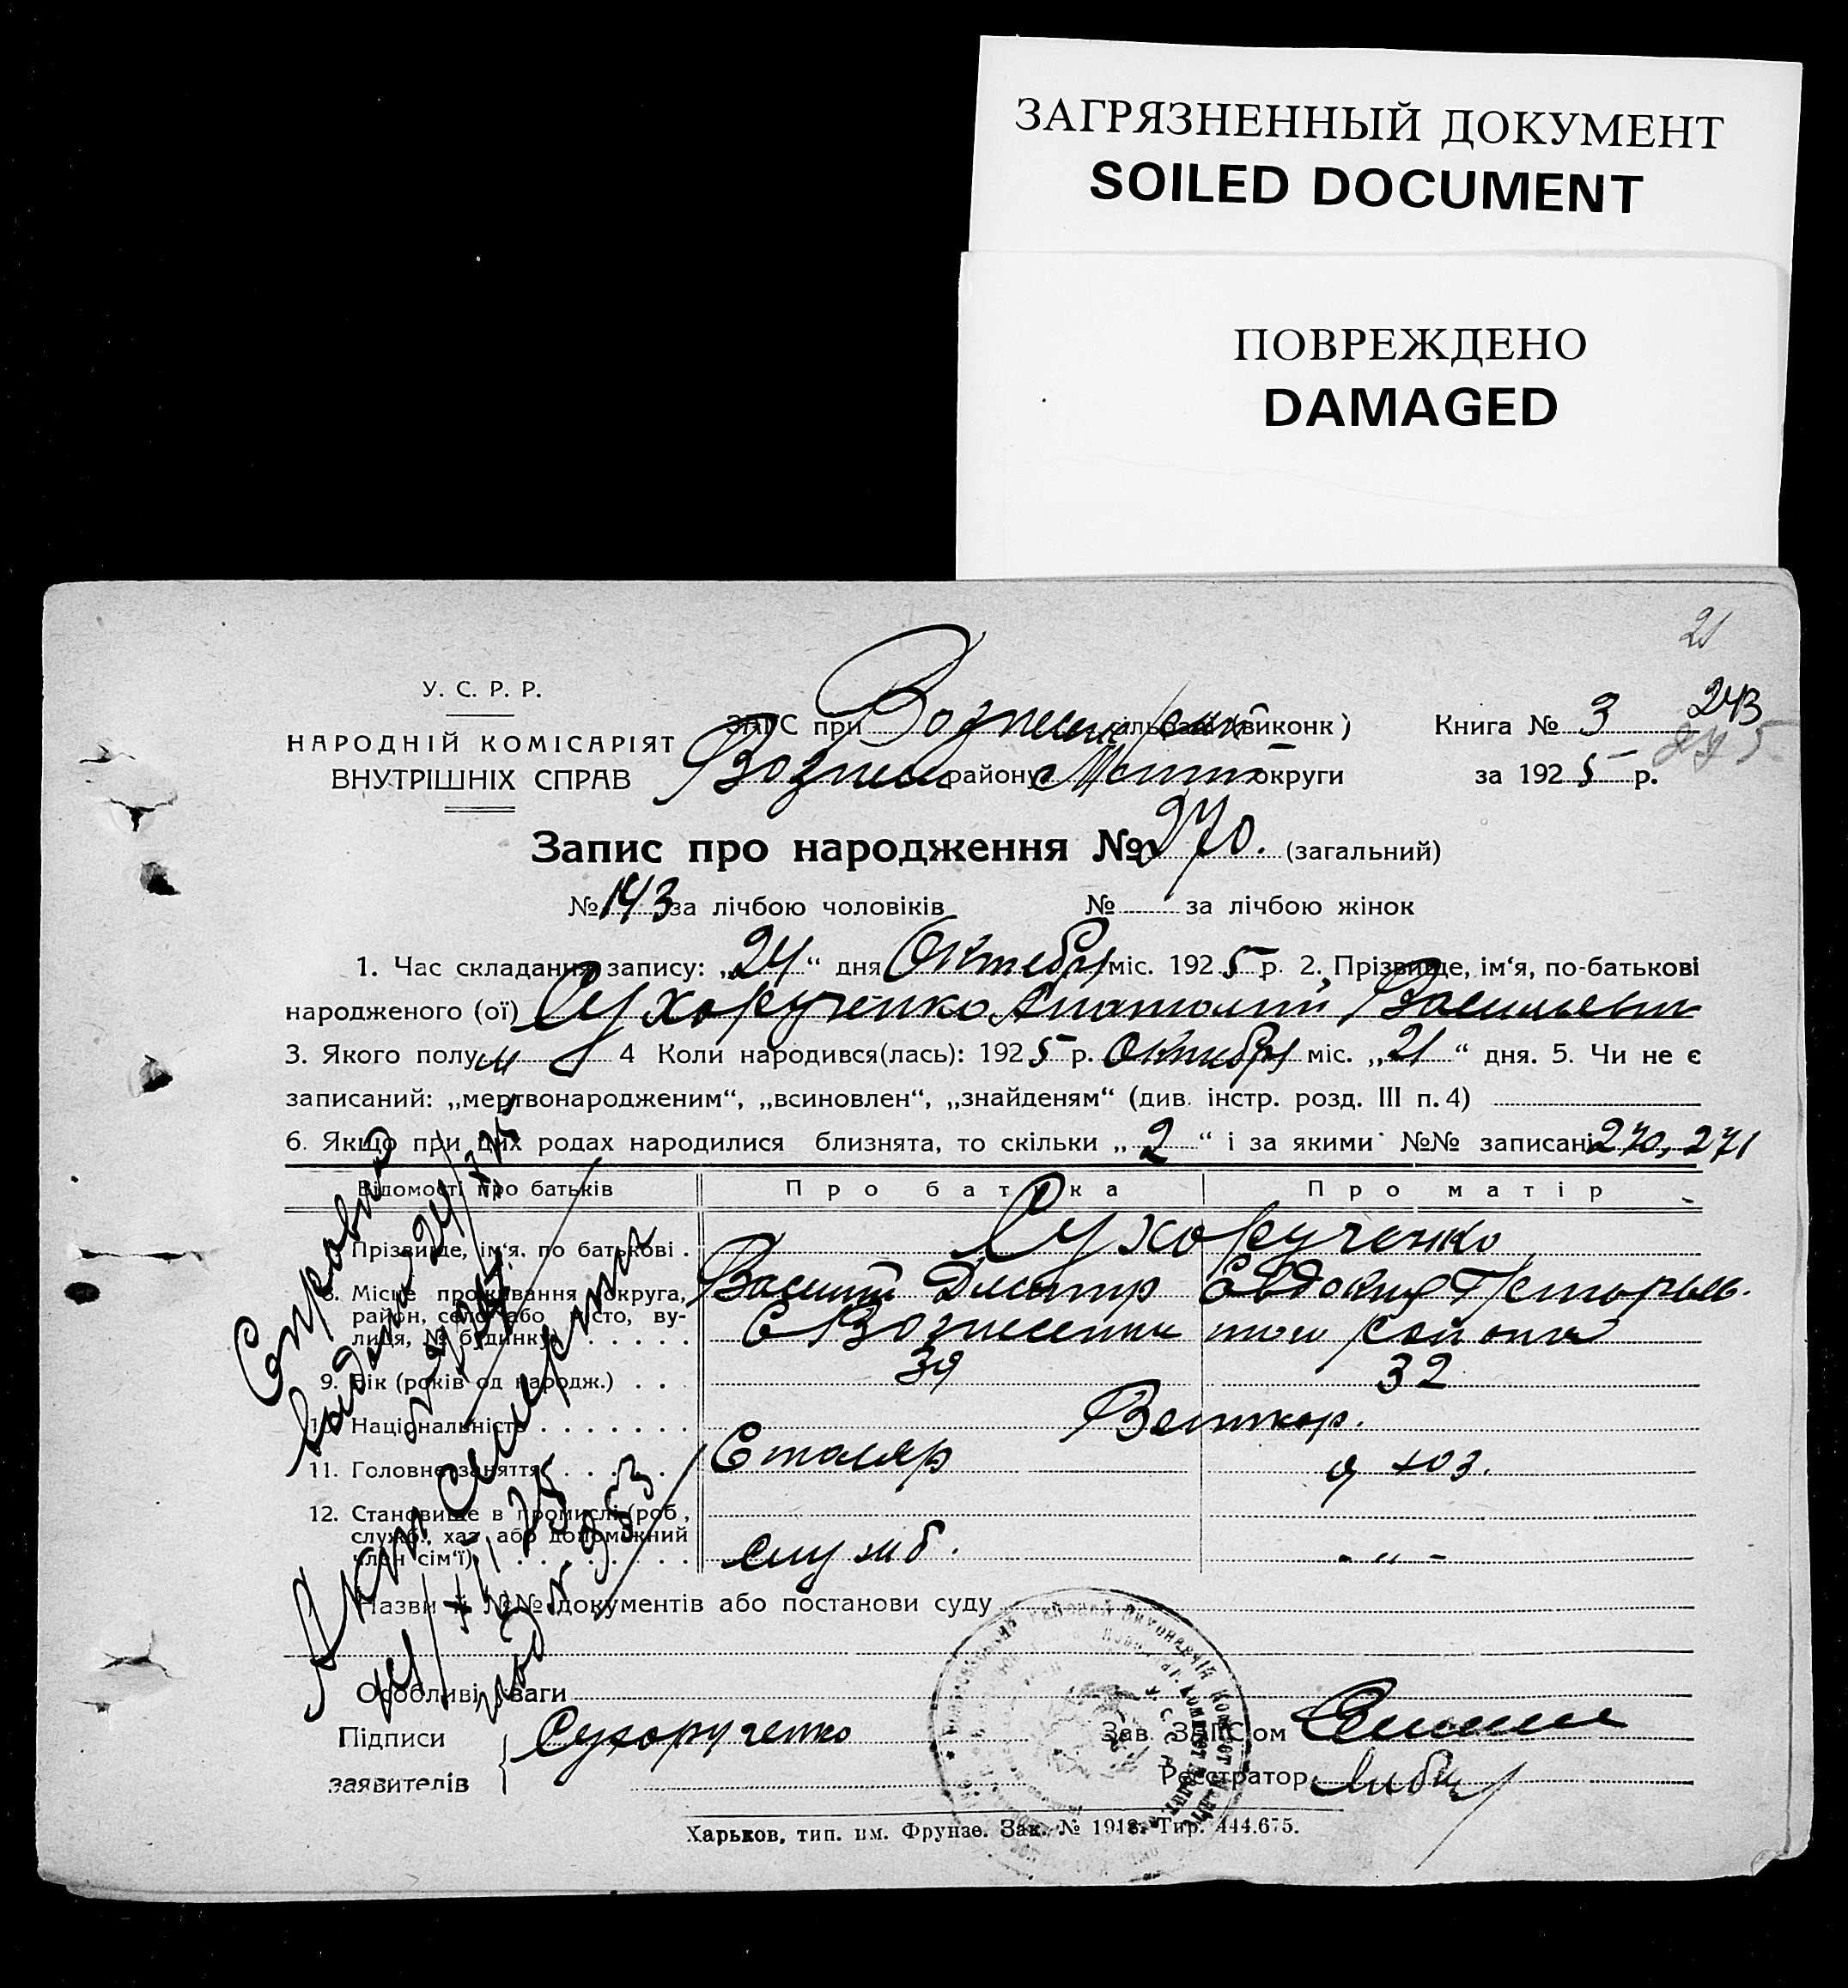 ЗАГРЯЗНЕННЫЙ ДОКУМЕНТ
SOILED DOCUMENT
ПОВРЕЖДЕНО
DAMAGED
21
243
У. С. Р. Р.
НАРОДНІЙ КОМІСАРІЯТ
ВНУТРІШНІХ СПРАВ
ЗАГС при сільраді (виконк)
району округи
Книга № 3
за 1925 р.
Запис про народження № 270. (загальний)
№ 143 за лічбою чоловіків № за лічбою жінок
1. Час складання запису: „24“ дня Октября міс. 1925 р. 2. Прізвище, ім‘я, по-батькові
народженого (ої) Сухорученко Анатолий Васильевич
3. Якого полу м 4 Коли народився(лась): 1925 р. Октября міс. „21“ дня. 5. Чи не є
записаний: „мертвонародженим“, „всиновлен“, „знайденям“ (див. інстр. розд. III п. 4)
6. Якщо при цих родах народилися близнята, то скільки „2“ і за якими №№ записані 270, 271
Відомості про батьків Про батька Про матір
Прізвище, ім‘я, по батькові . Сухорученко
8. Місце проживання (округа, Василий Дмитр Евдокия Григорьев.
район, село або місто, ву-
лиця, № будинку) С Вознесенки
9. Вік (років од народж.) . . 39 32
10. Національність Великор.
11. Головне заняття Столяр
12. Становище в промислі (роб,
служб., хаз або допоміжний
член сім‘ї) служб. - „ -
Назви й №№ документів або постанови суду
Особливі уваги
Підписи Сухорученко Зав. ЗАГС‘ом
заявителів Реєстратор
Харьков, тип. им. Фрунзе. Зак. № 1918. Тир. 444.675.
Справка
выдана 24/X 25
Акт смерти